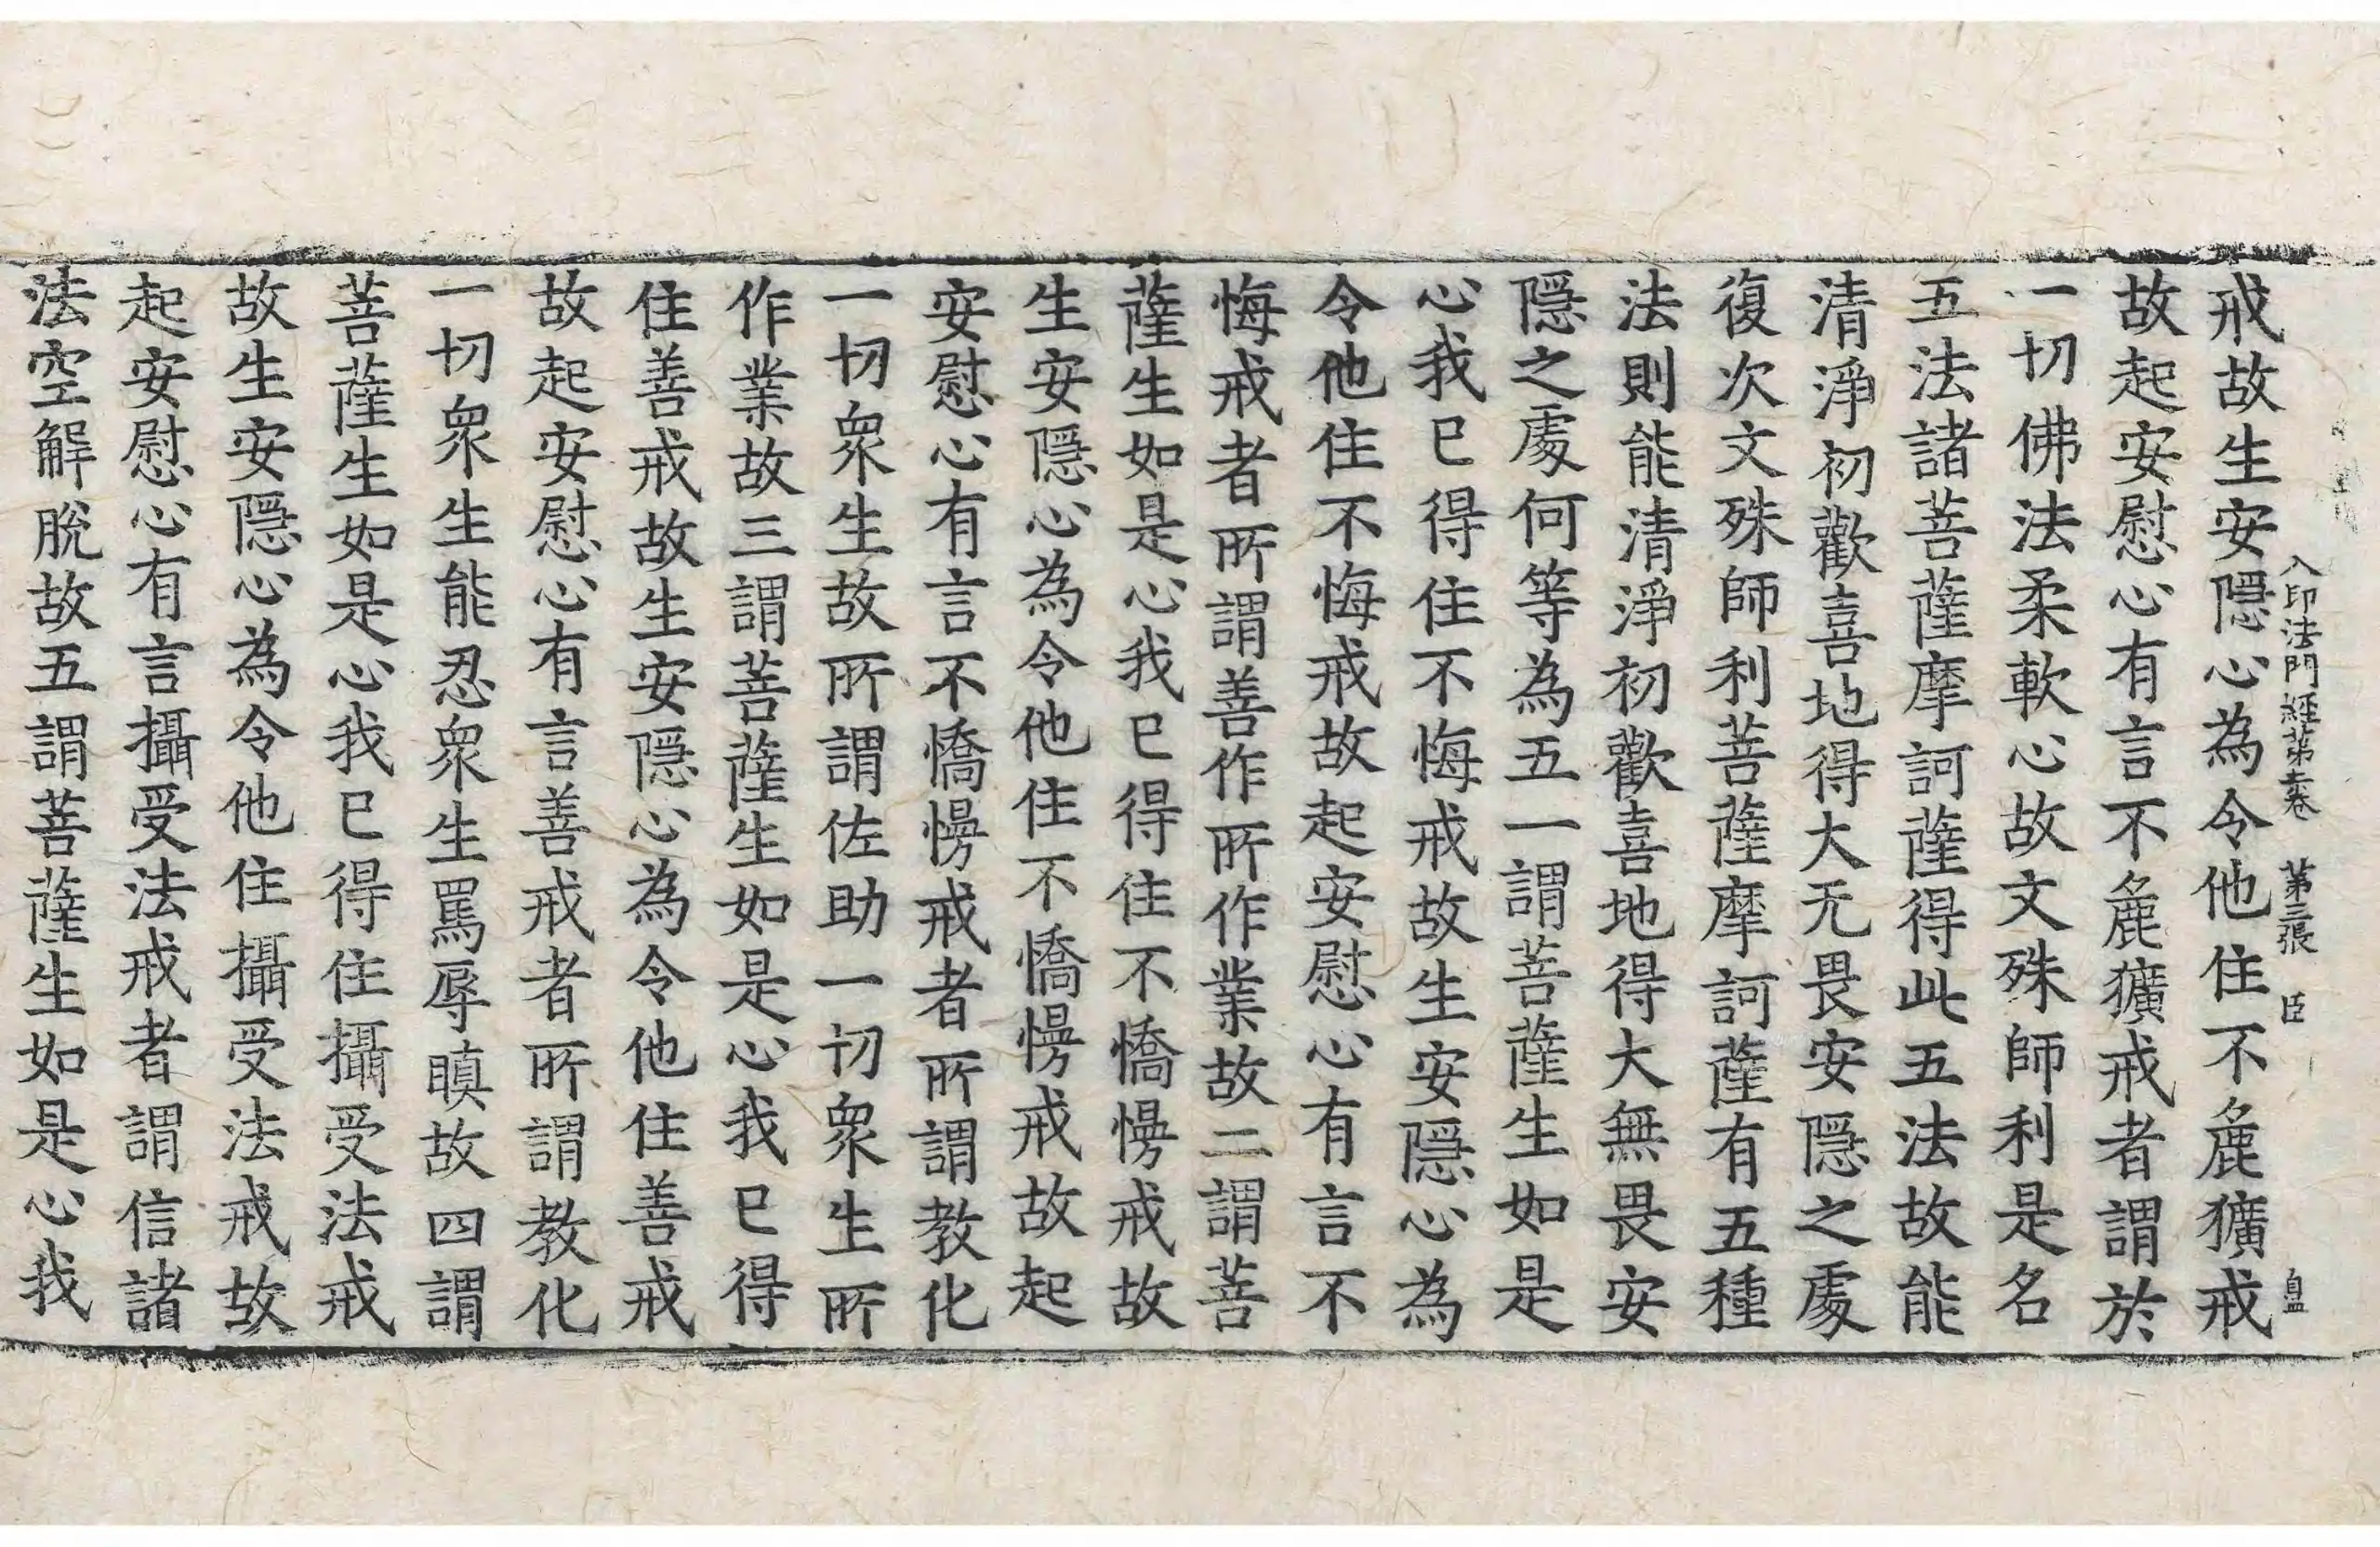 入印法門經第五卷 第三張 臣
戒故生安隱心為令他住不麁獷戒
故起安慰心有言不麁獷戒者謂於
一切佛法柔軟心故文殊師利是名
五法諸菩薩摩訶薩得此五法故能
清淨初歡喜地得大无畏安隱之處
復次文殊師利菩薩摩訶薩有五種
法則能清淨初歡喜地得大無畏安
隱之處何等為五一謂菩薩生如是
心我已得住不悔戒故生安隱心為
令他住不悔戒故起安慰心有言不
悔戒者所謂善作所作業故二謂菩
薩生如是心我已得住不憍慢戒故
生安隱心為令他住不憍慢戒故起
安慰心有言不憍慢戒者所謂教化
一切衆生故所謂佐助一切衆生所
作業故三謂菩薩生如是心我已得
住善戒故生安隱心為令他住善戒
故起安慰心有言善戒者所謂教化
一切衆生能忍衆生罵辱瞋故四謂
菩薩生如是心我已得住攝受法戒
故生安隱心為令他住攝受法戒故
起安慰心有言攝受法戒者謂信諸
法空解脫故五謂菩薩生如是心我